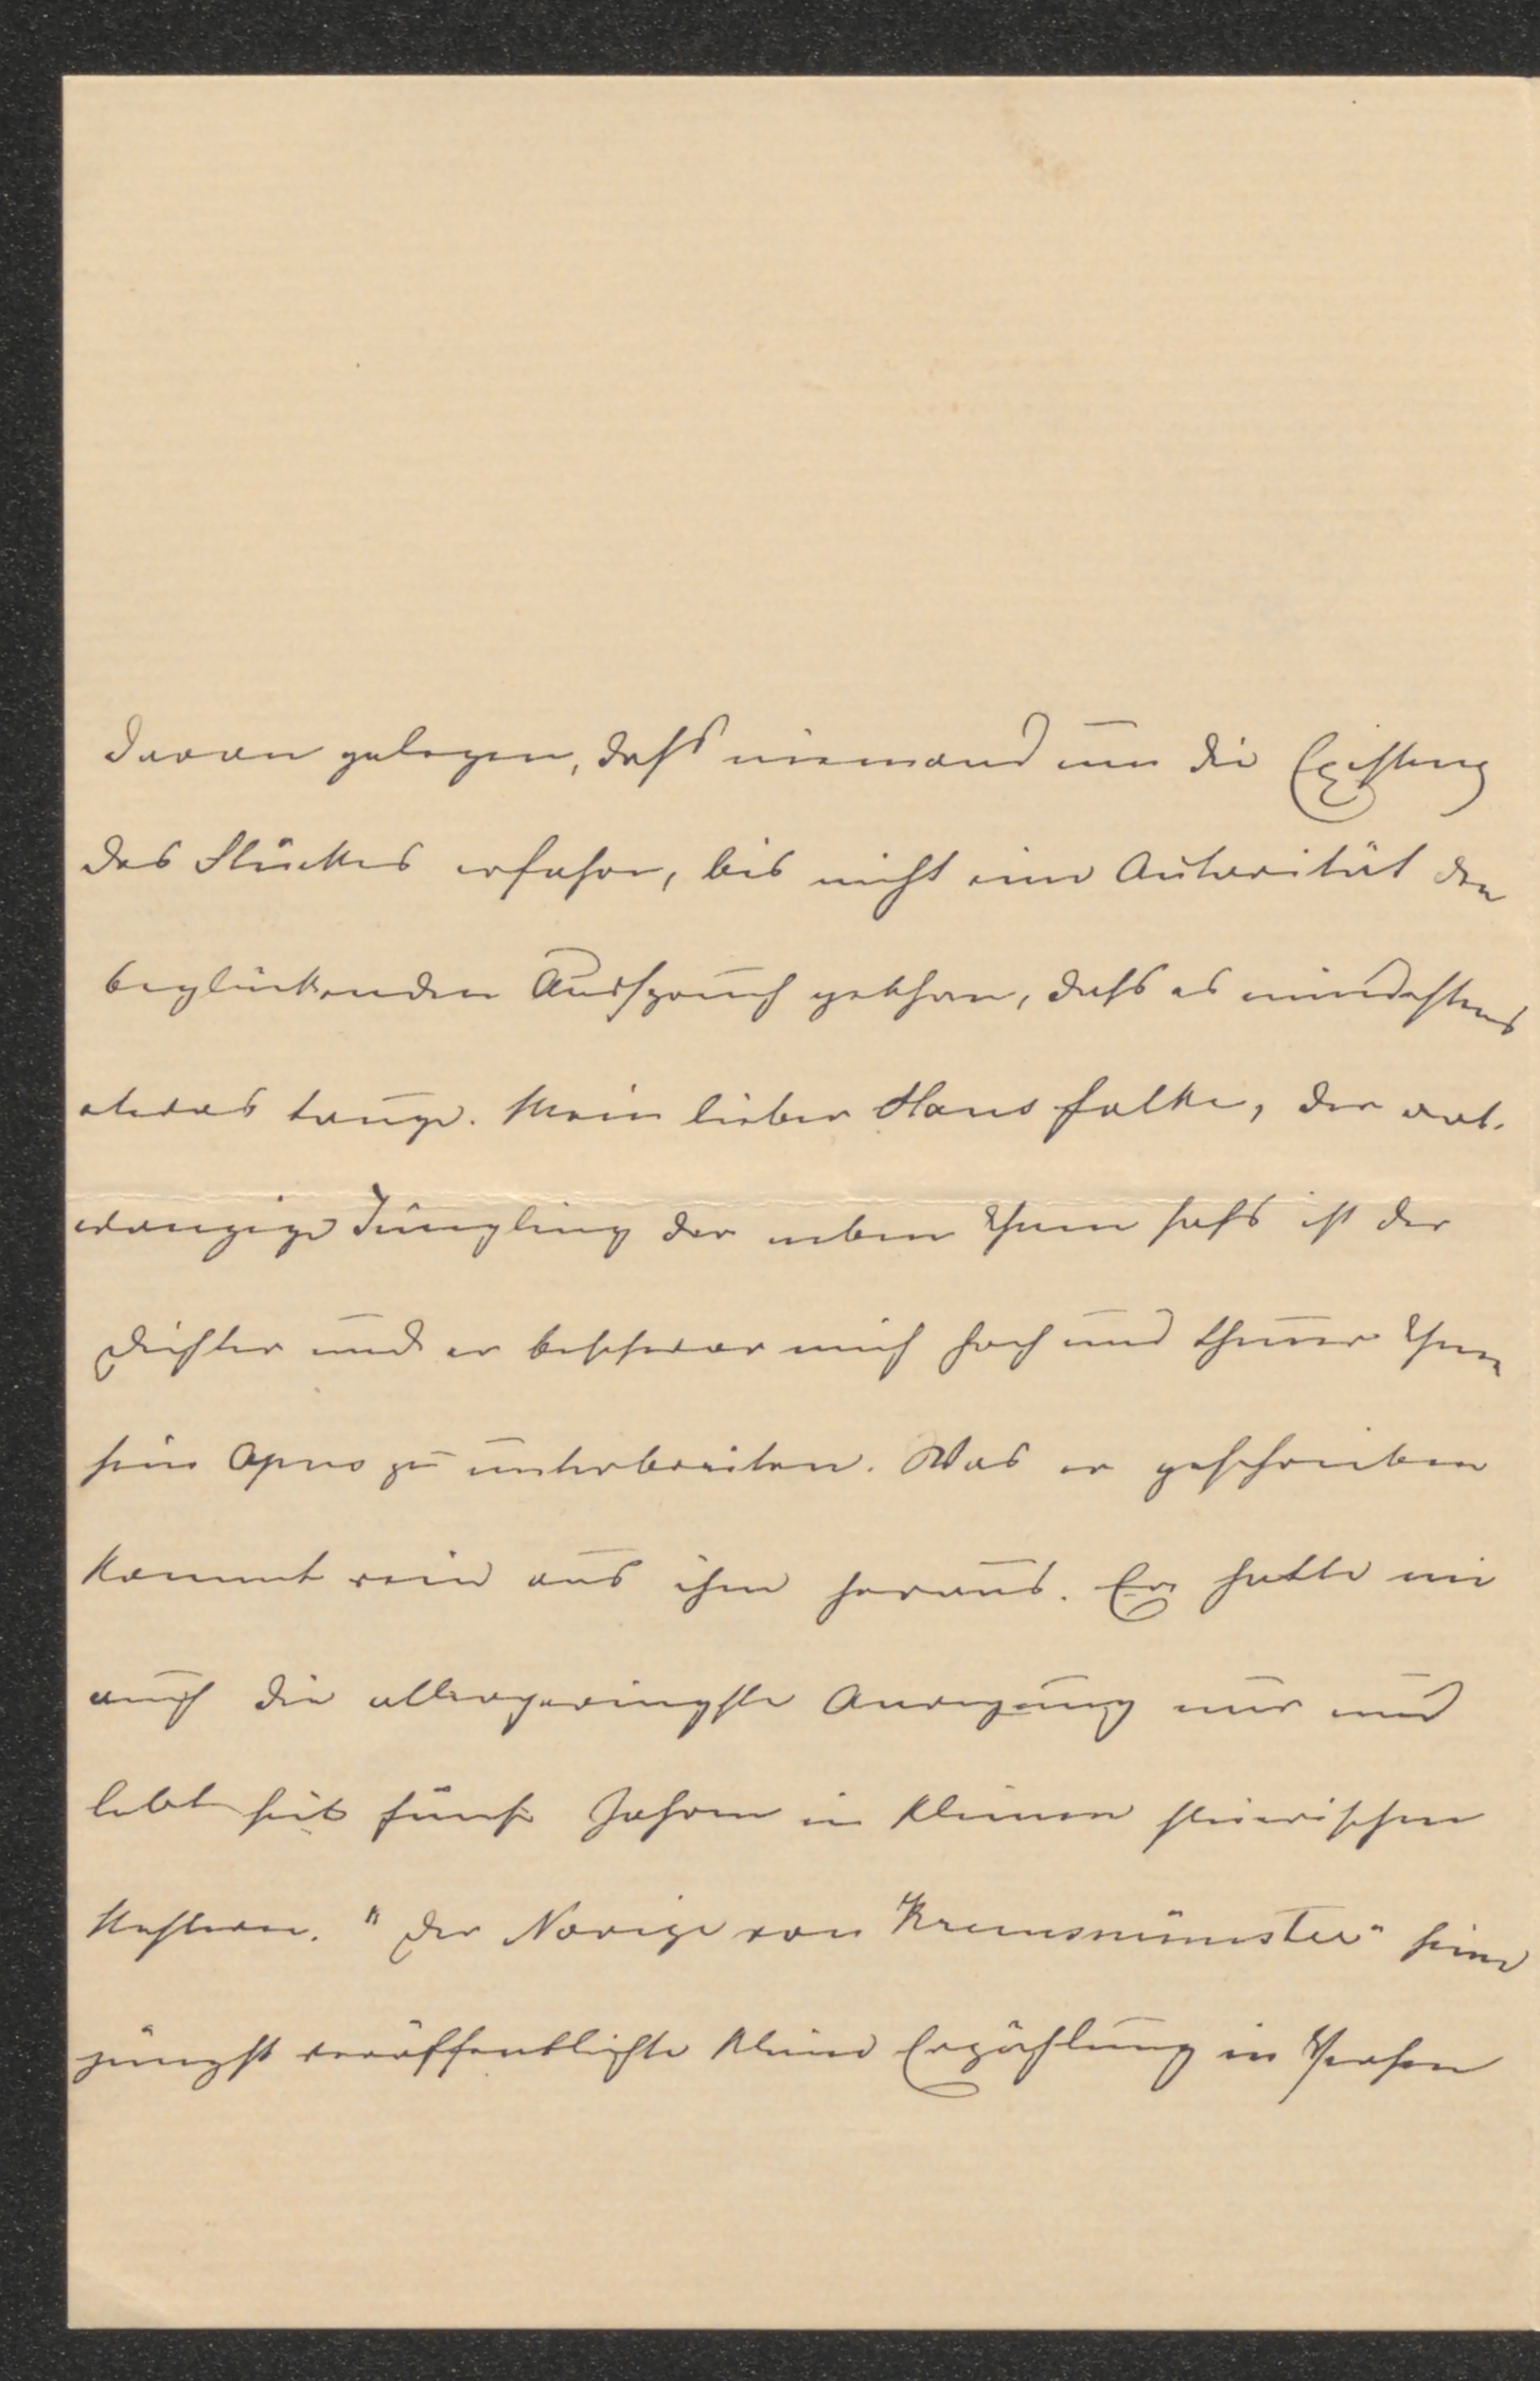 daran gelegen, daß niemand um die Existenz
des Stückes erfahre, bis nicht eine Autorität den
beglückenden Ausspruch gethan, daß es mindestens
etwas tauge. Mein lieber Hans Falke, der
Jüngling der neben Ihnen saß ist der
Dichter und er beschwor mich hoch und theuer Ihnen
sein Opus zu unterbreiten. Was er geschrieben
kommt rein aus ihm heraus. Er hatte nie
auch die allergeringste Anregung nur und
lebt seit fünf Jahren in kleinen steirischen
Nestern. "Der Novize von Kremsmünster" seine
jüngst veröffentlichte kleine Erzählung in Versen